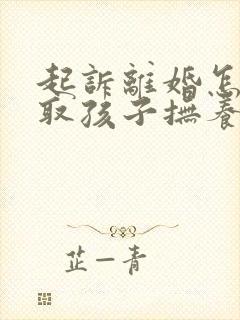 起訴離婚怎
取孩子撫養
芷一青